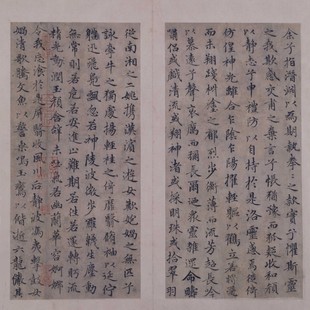 余兮指潛淵以爲期執拳拳之款實兮懼斯靈
之我欺感交甫之棄言兮悵猶豫而狐疑收和顏
以靜志兮申禮防以自持於是洛靈感焉徙倚
彷徨神光離合乍陰乍陽擢輕軀以鶴立若將飛
而未翔踐椒塗之郁烈步蘅薄而流芳超長吟
以慕遠兮聲哀厲而彌長爾迺衆靈雜遝命
儔嘯侶或戲清流或翔神渚或採明珠或拾翠羽
從南湘之二妃攜漢濱之遊女歎匏媧之無匹兮
詠牽牛之獨處揚輕袿之倚靡翳脩袖以延佇
體迅飛鳧飄忽若神陵波微步羅襪生塵動
無常則若危若安進止難期若往若還轉眄流
精光潤玉顏含辭未吐氣若幽蘭華容婀娜
令我忘湌於是屏翳收風川后靜波馮夷擊鼓女
媧清歌騰文魚以警乘鳴玉鸞以偕逝六龍儼其